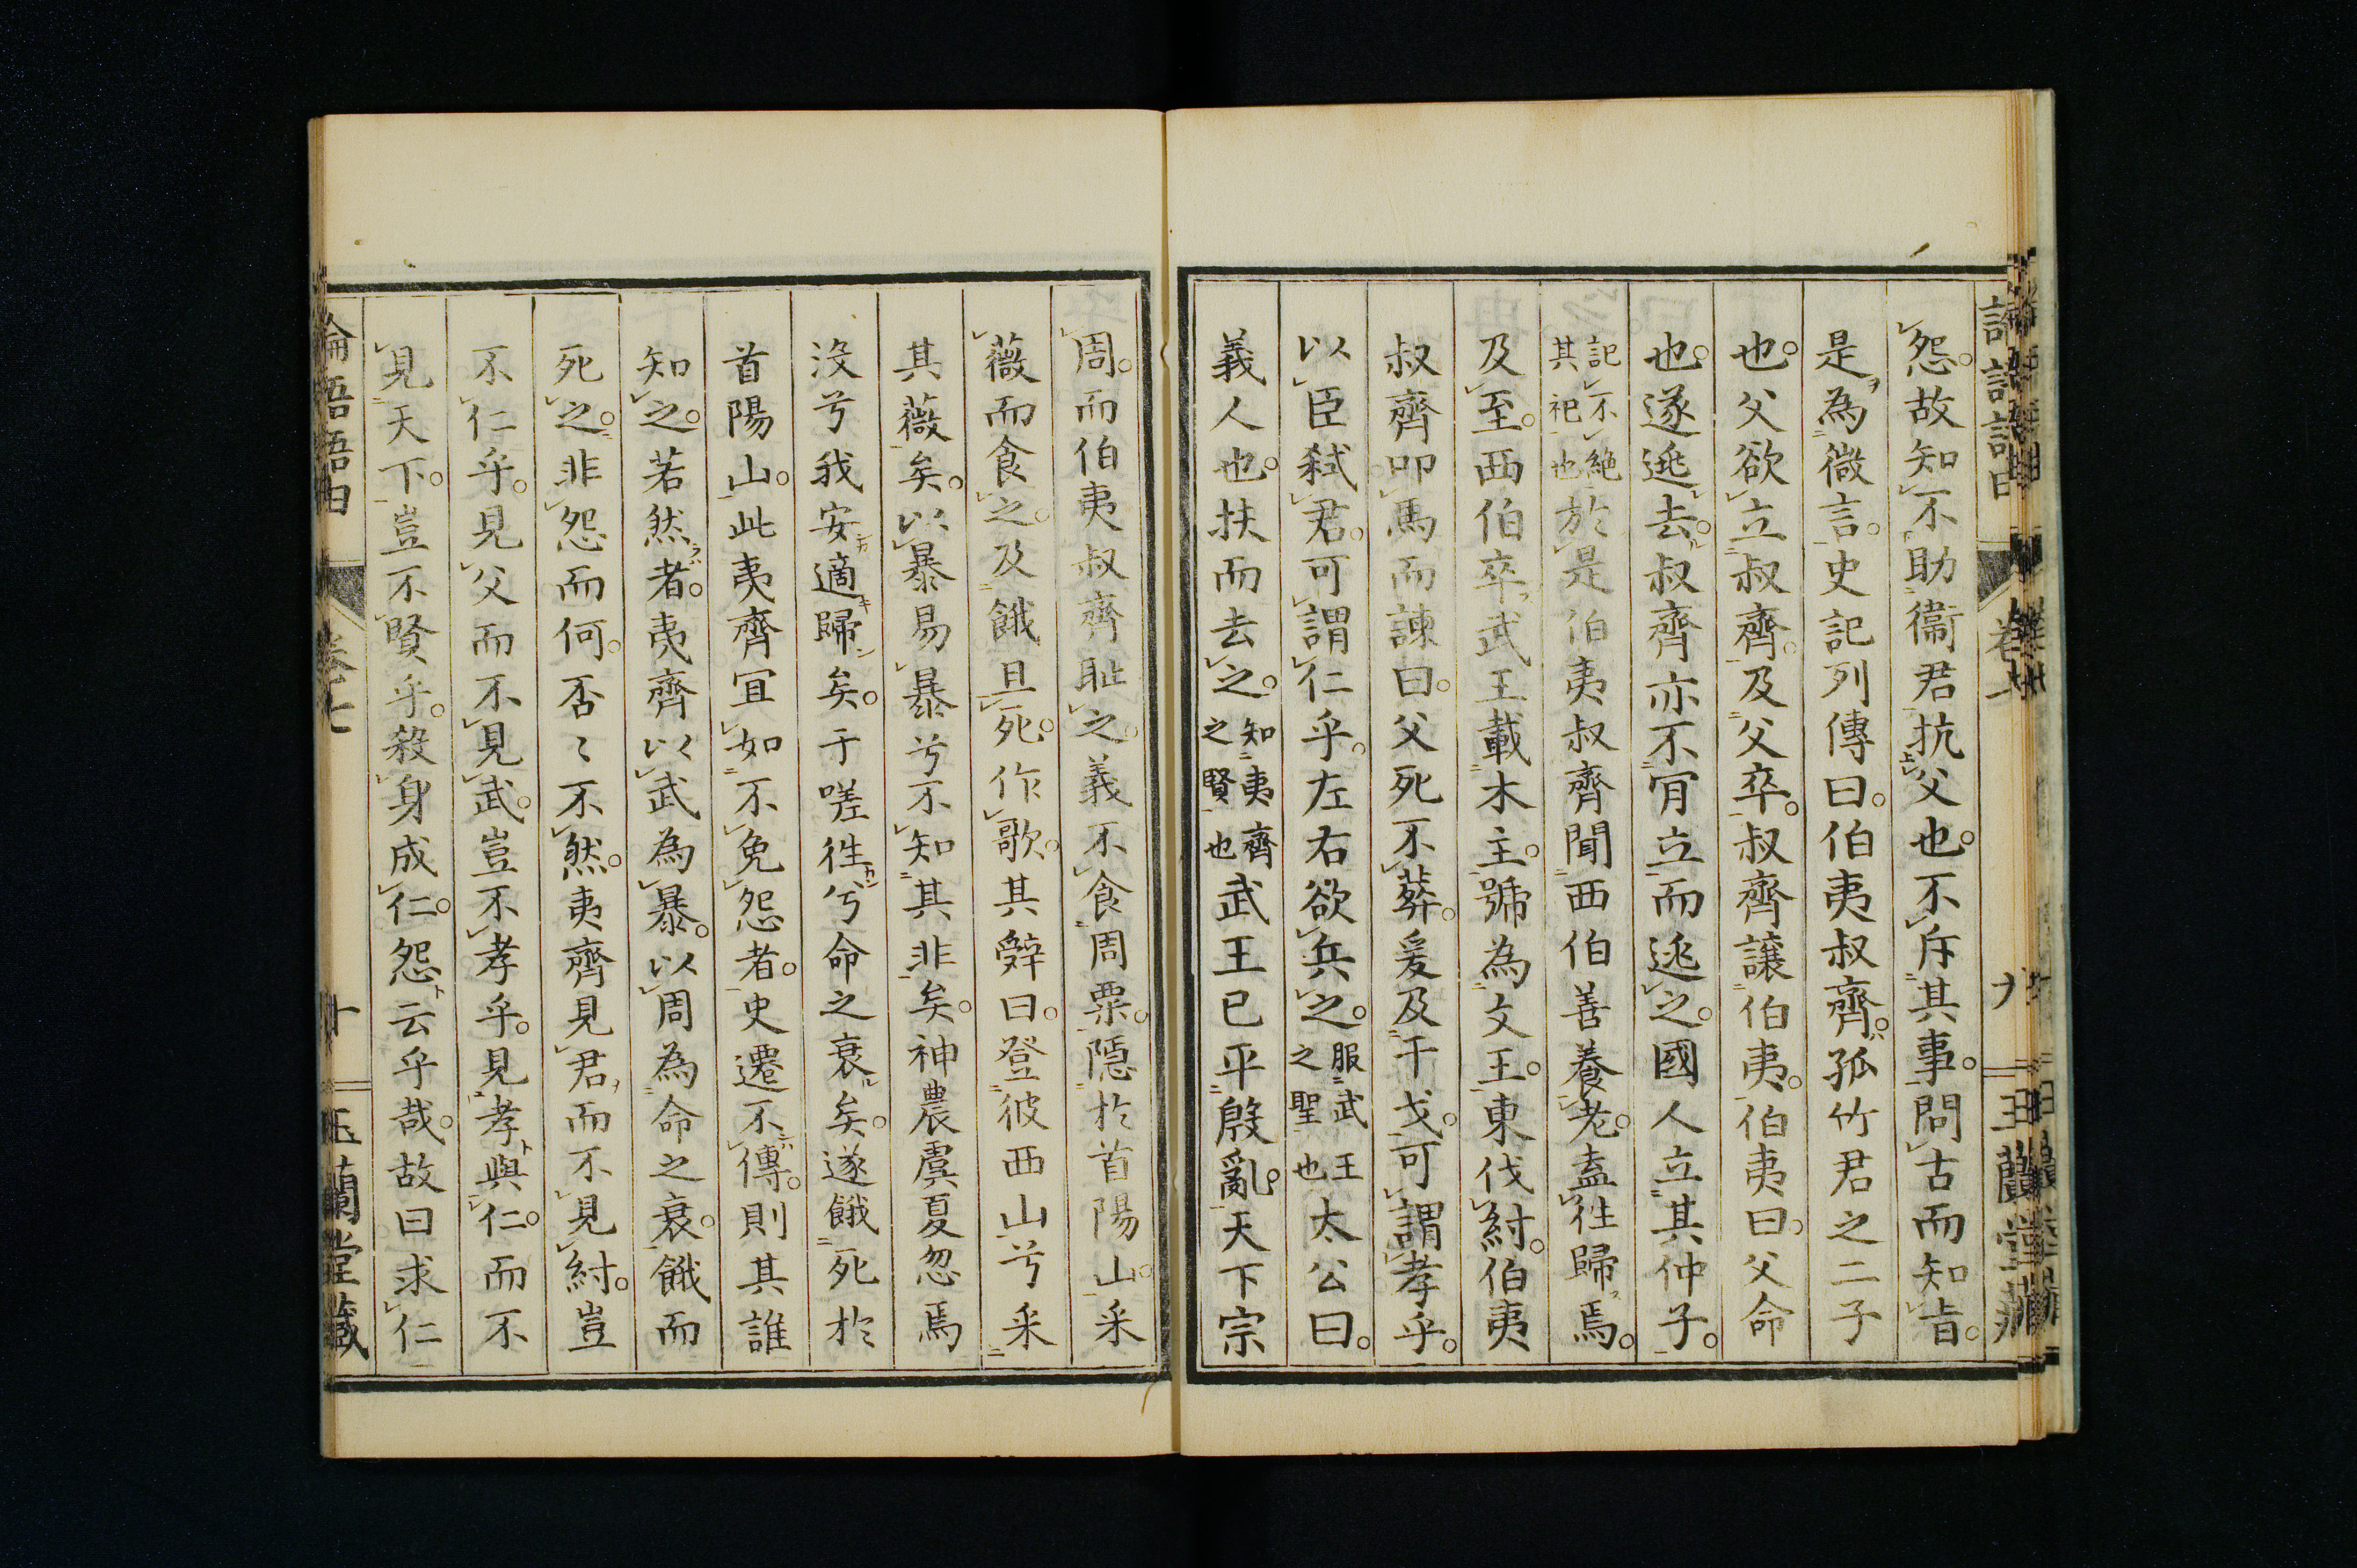 怨。故知不助衞君抗父也。不斥其事。問古而知旨。
是為微言。史記列傳曰。伯夷叔齊。孤竹君之二子
也。父欲立叔齊。及父卒。叔齊讓伯夷。伯夷曰。父命
也。遂逃去。叔齊亦不肎立而逃之。國人立其仲子。
記不絶
其祀也
於是伯夷叔齊聞西伯善養老。盍徃歸焉。
及至。西伯卒。武王載木主。號為文王。東伐紂。伯夷
叔齊叩馬而諫曰。父死不葬。爰及干戈。可謂孝乎。
以臣弑君。可謂仁乎。左右欲兵之。
服武王
之聖也
太公曰。
義人也。扶而去之。
知夷齊
之賢也
武王已平殷亂。天下宗
周。而伯夷叔齊耻之。義不食周粟。隱於首陽山。采
薇而食之。及餓且死。作歌。其辭曰。登彼西山兮采
其薇矣。以暴易暴兮不知其非矣。神農虞夏忽焉
沒兮我安適歸矣。于嗟徃兮命之衰矣。遂餓死於
首陽山。此夷齊冝如不免怨者。史遷不傳。則其誰
知之。若然者。夷齊以武為暴。以周為命之衰。餓而
死之。非怨而何。否〻不然。夷齊見君而不見紂。豈
不仁乎。見父而不見武。豈不孝乎。見孝與仁。而不
見天下。豈不賢乎。殺身成仁。怨云乎哉。故曰求仁
論語語由 卷七 十 玉蘭堂藏